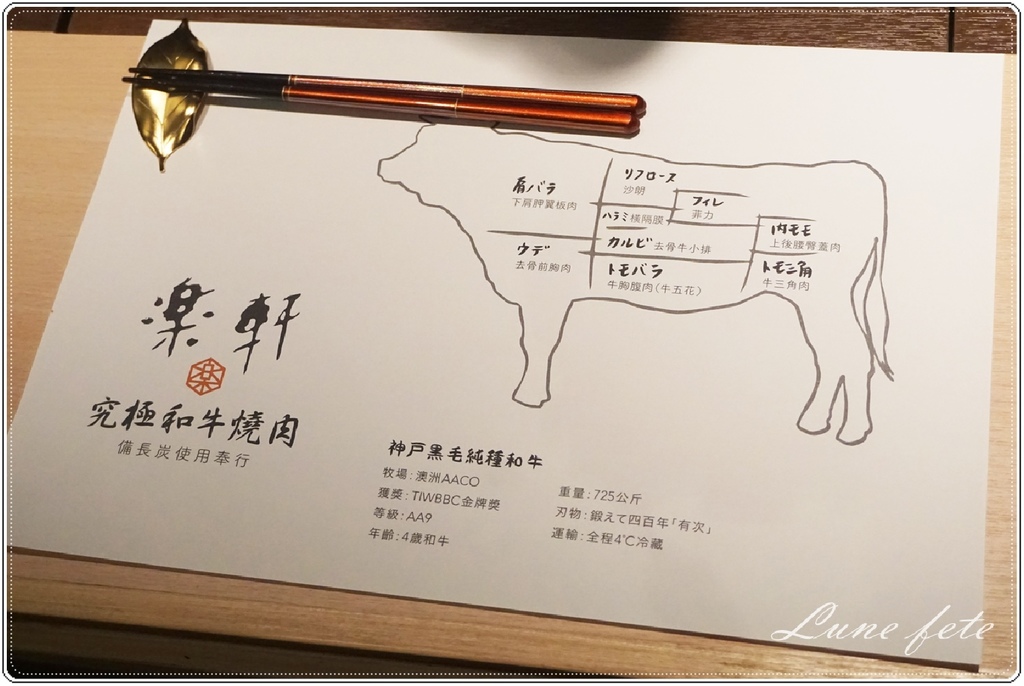 肩バラ
下肩胛翼板肉
リブロース
沙朗
フィレ
菲力
ハラミ橫隔膜
内モモ
上後腰臀蓋肉
ウデ
去骨前胸肉
カルビ去骨牛小排
トモバラ
牛胸腹肉(牛五花)
トモ三角
牛三角肉
楽軒
楽
究極和牛燒肉
備長炭使用奉行
神戸黒毛純種和牛
牧場:澳洲AACO
獲獎:TIWBBC金牌獎
等級:AA9
年齡:4歲和牛
重量:725公斤
刃物:鍛えて四百年「有次」
運輸:全程4℃冷藏
Lune fete